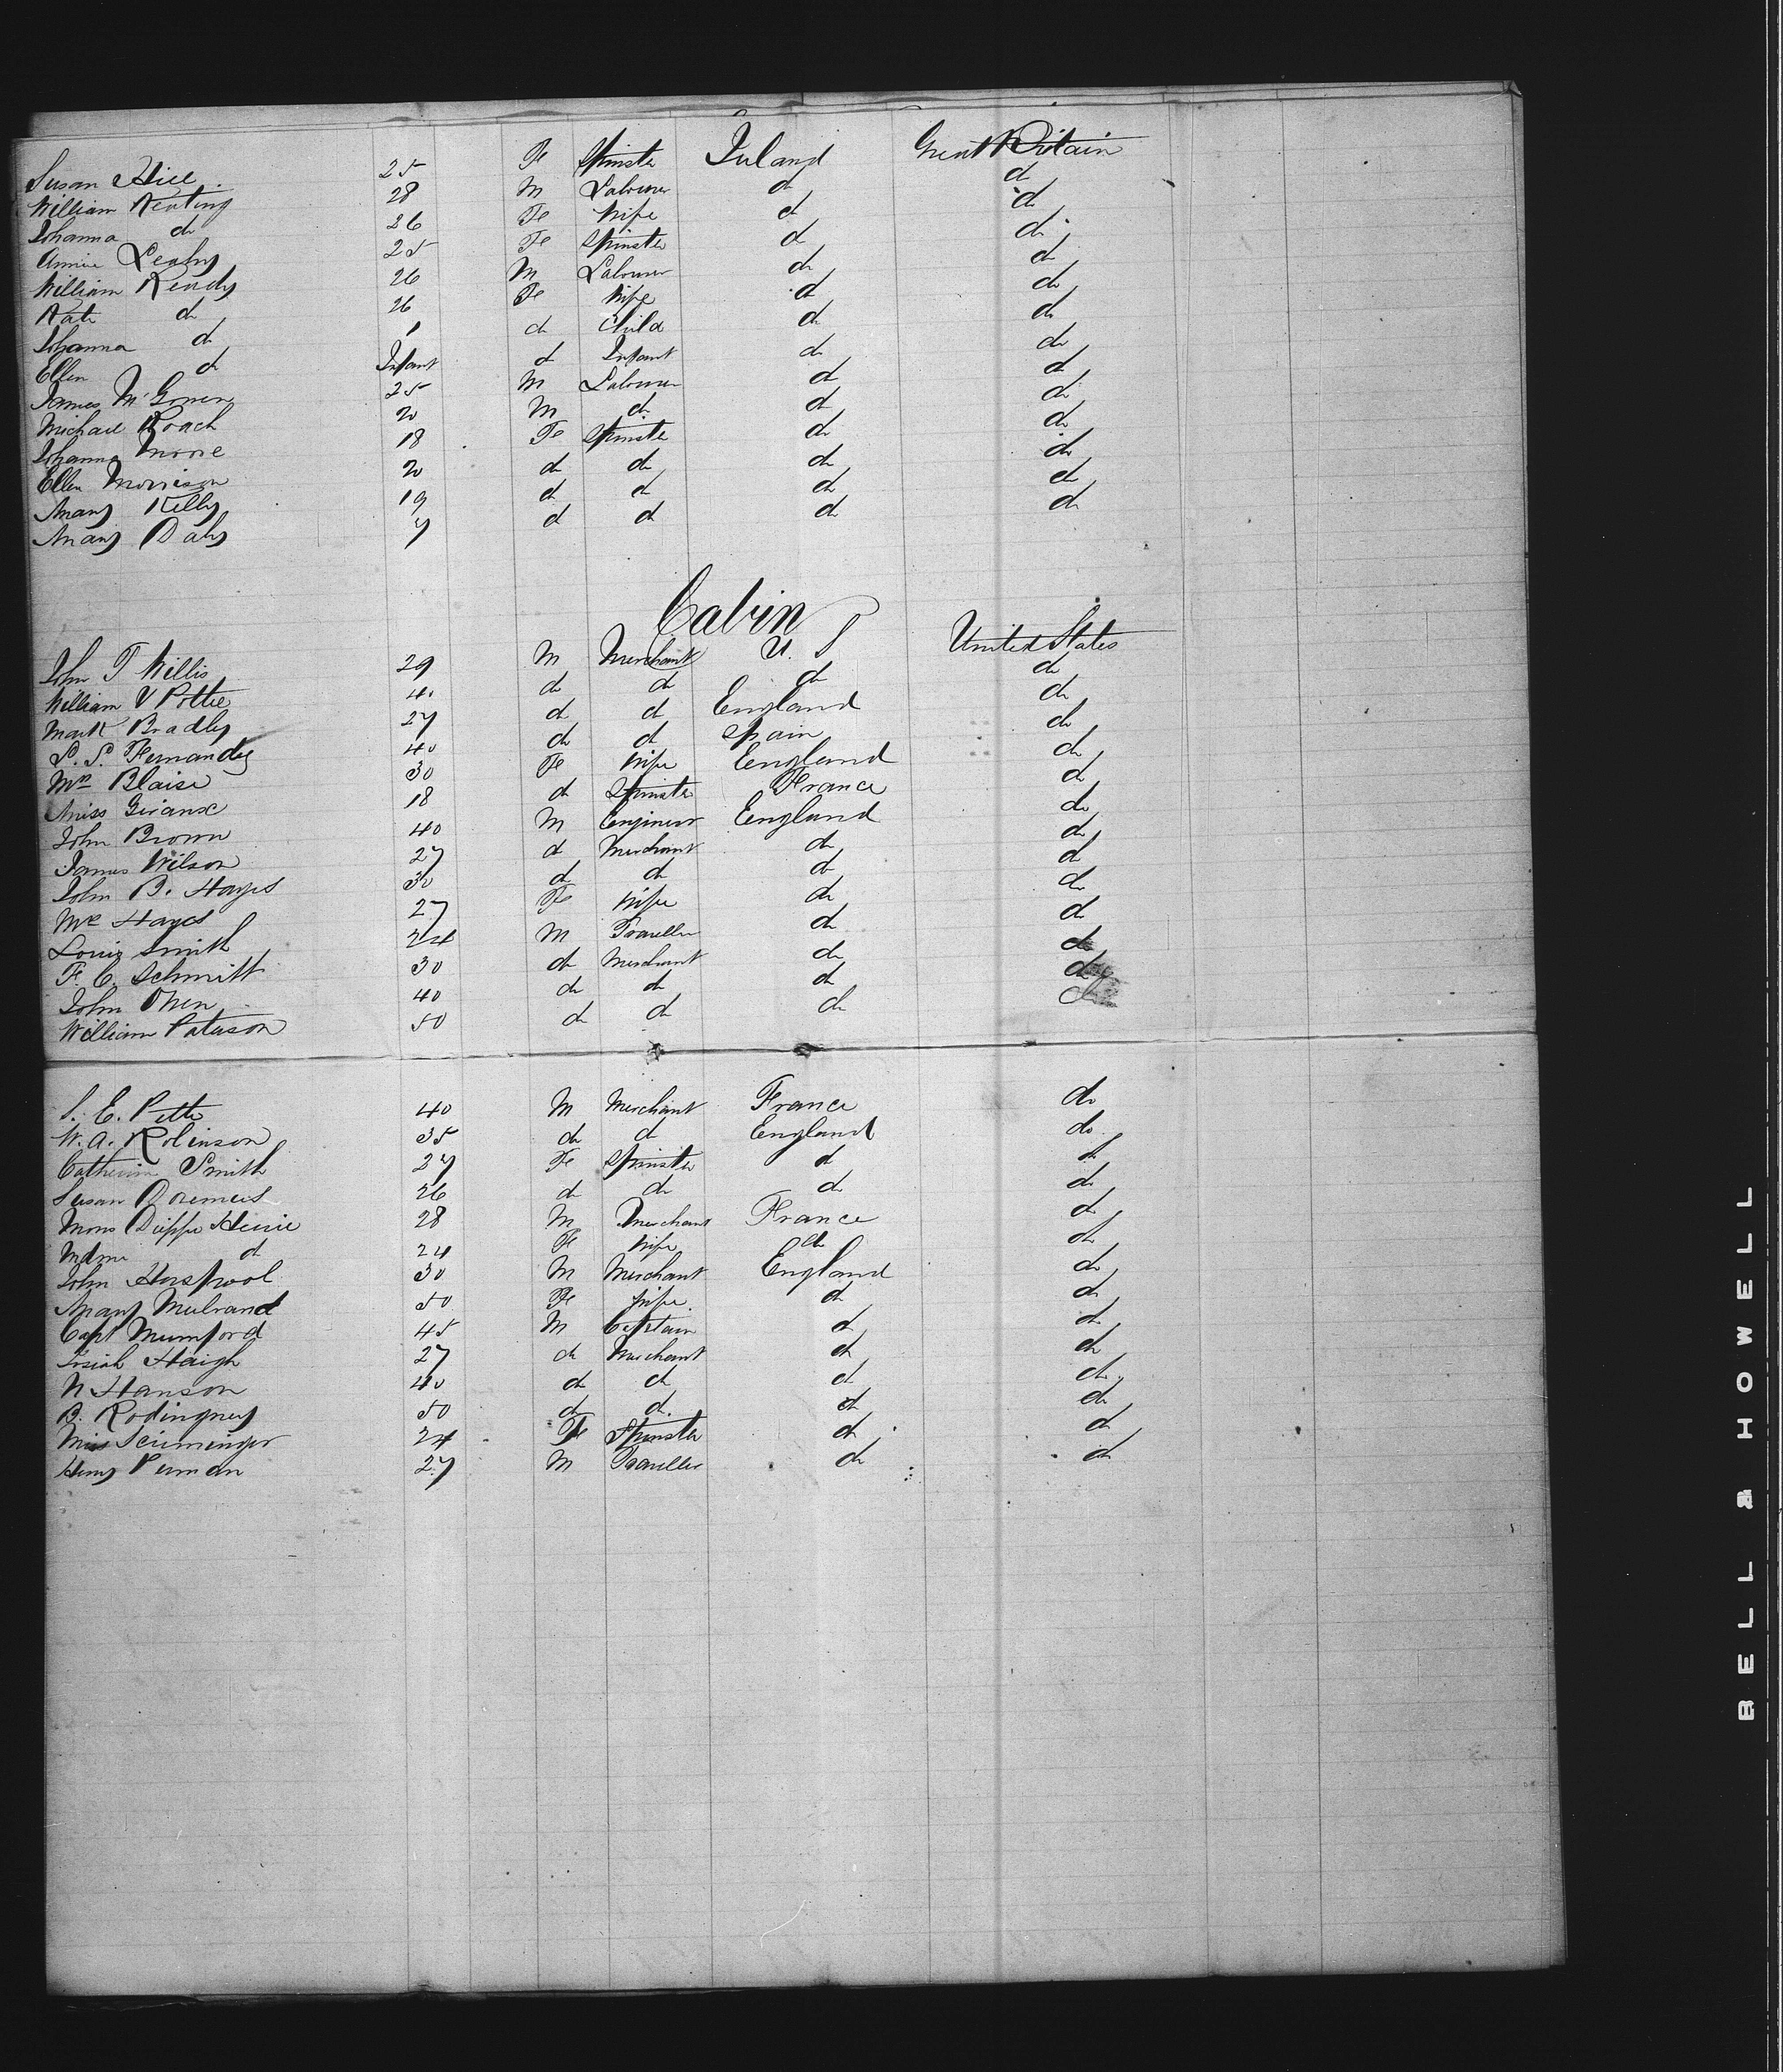 Susan Hill 25 Fe Spinster Ireland Great Britain
William Keating 28 M Labourer do do
Johanna do 26 Fe Wife do do
Annie Leahy 25 Fe Spinster do do
William Ready 26 M Labourer do do
Kate do 26 Fe Wife do do
Johanna do 1 do Child do do
Ellen do Infant do Infant do do
James 25 M Labourer do do
Michael Roach 20 M do do do
Johanna Moore 18 Fe Spinster do do
Ellen Morrison 20 do do do do
Mary Kelly 19 do do do do
Mary Daly 7 do do do do
Cabin
John T Willis 29 M Merchant U.S United States
William V Pottie 40 do do do do
Mark Bradly 27 do do England do
L. S. Fernandez 40 do do Spain do
Mrs Blaise 30 Fe Wife England do
Miss 18 do Spinster France do
John Brown 40 M Engineer England do
James Wilson 27 do Merchant do do
John B. Hayes 30 do do do do
Mrs Hayes 27 Fe Wife do do
Louis Smith 24 M Traveller do do
F. C. Schmitt 30 do Merchant do do
John Owen 40 do do do do
William Paterson 50 do do do do
S. E. Pette 40 M Merchant France do
W. A. Robinson 35 do do England do
Catherine Smith 27 Fe Spinster do do
Susan Doremus 26 do do do do
Mons Dieppe 28 M Merchant France do
Mdme do 24 Fe Wife do do
John Horspool 30 M Merchant England do
Mary 50 Fe Wife do do
Capt Mumford 45 M Captain do do
Josiah Haigh 27 do Merchant do do
N Hanson 40 do do do do
B. 50 do do do do
Miss 24 Fe Spinster do do
Henry 27 M Traveller do do
BELL & HOWELL